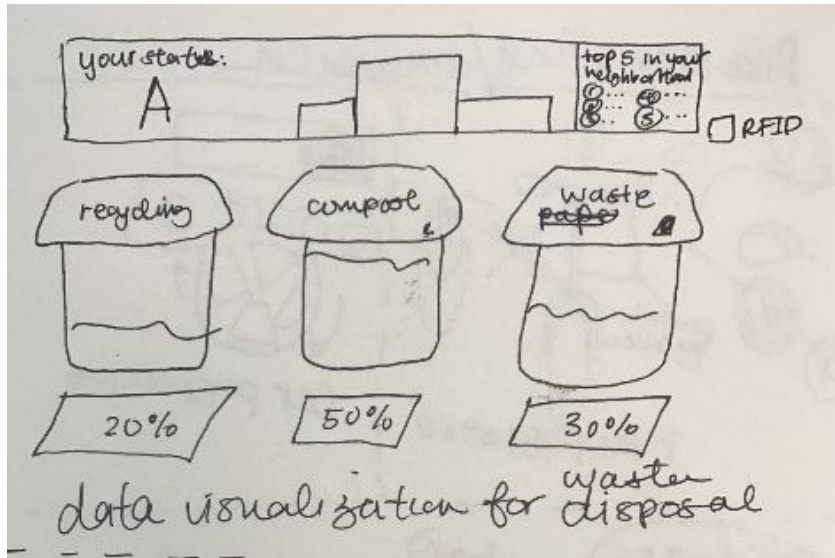 your status:
A
top 5 in your
neighborhood
1 ... 4 ...
2 ...
3 .. 5 ...
RFID
recycling
compost
waste
20%
50%
30%
data visualization for waste
disposal